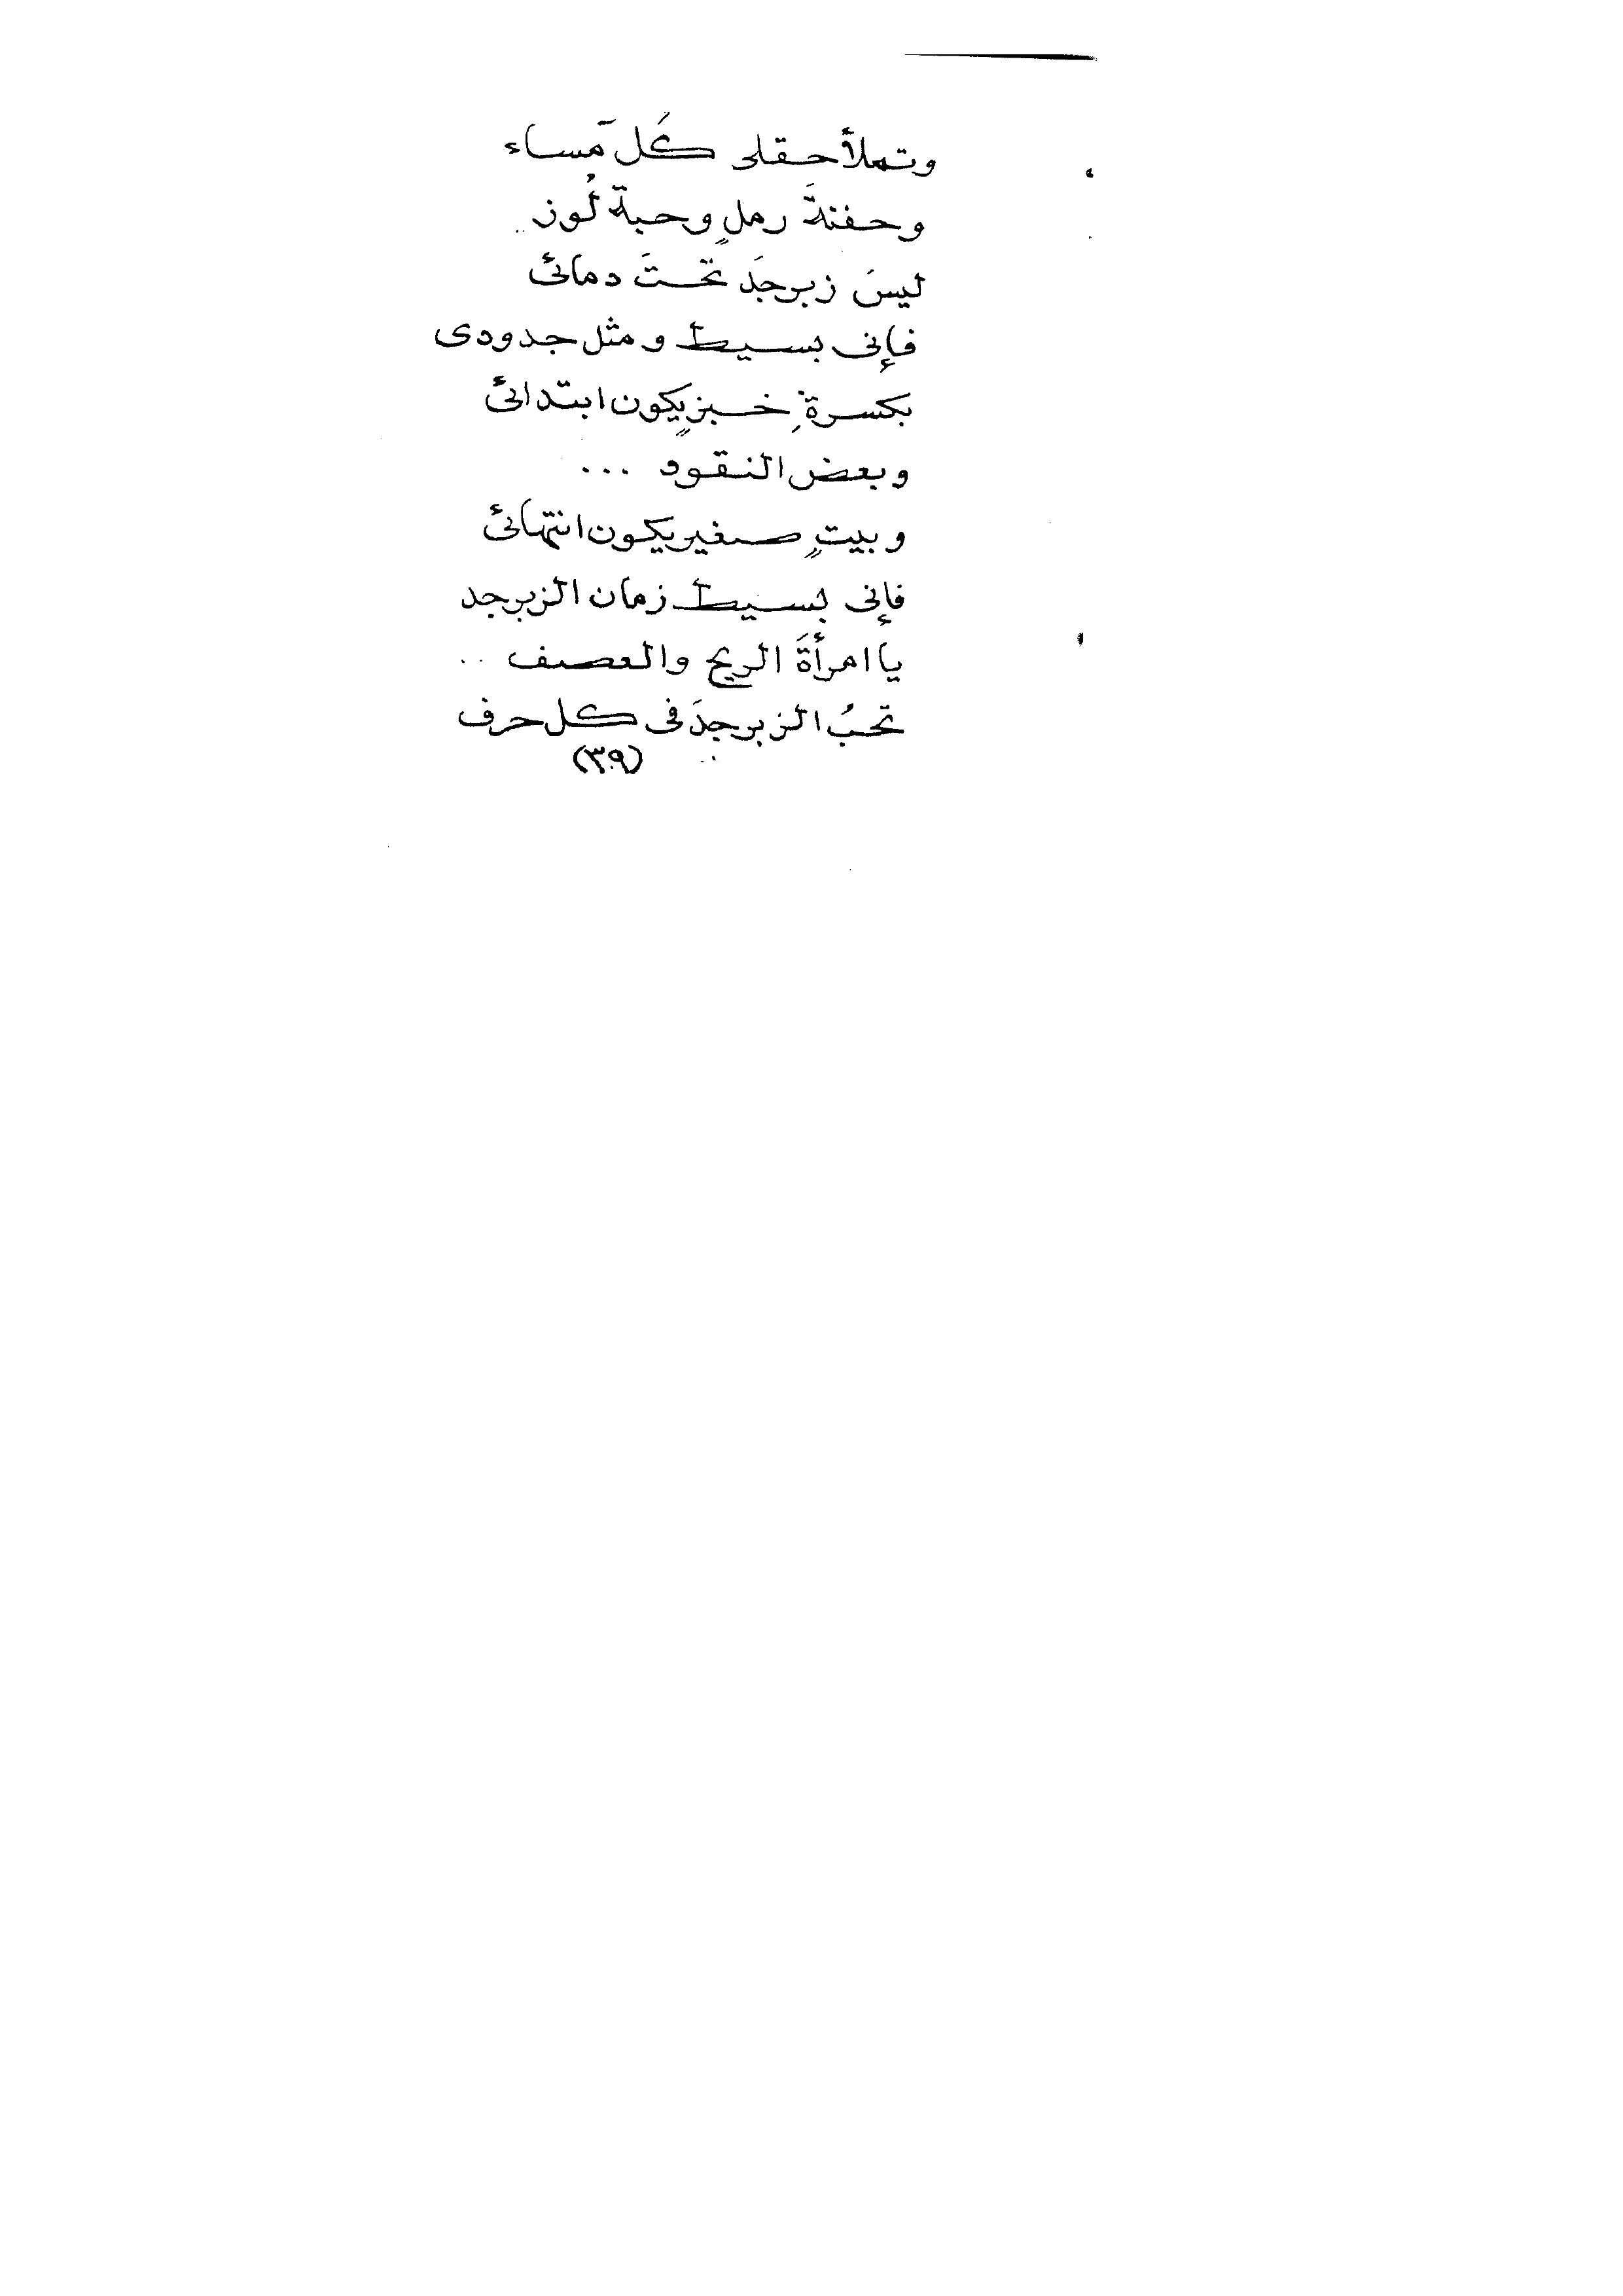 وتملأ حقلى كَل مَساء
وحفنةَ رملٍ وحبة لُوز..
ليسَ زبرجدَ تحتَ دمائى
فإنى بسيط ومثل جدودى
بكسرةِ خبزٍ يكون ابتدائى
وبعض النقود ...
وبيتٍ صغير يكون انتهائى
فإنى بسيط زمان الزبرجد
يا امرأةَ الريح والعصف ..
تحبُ الزبرجدَ فى كل حرف
(٣٩)